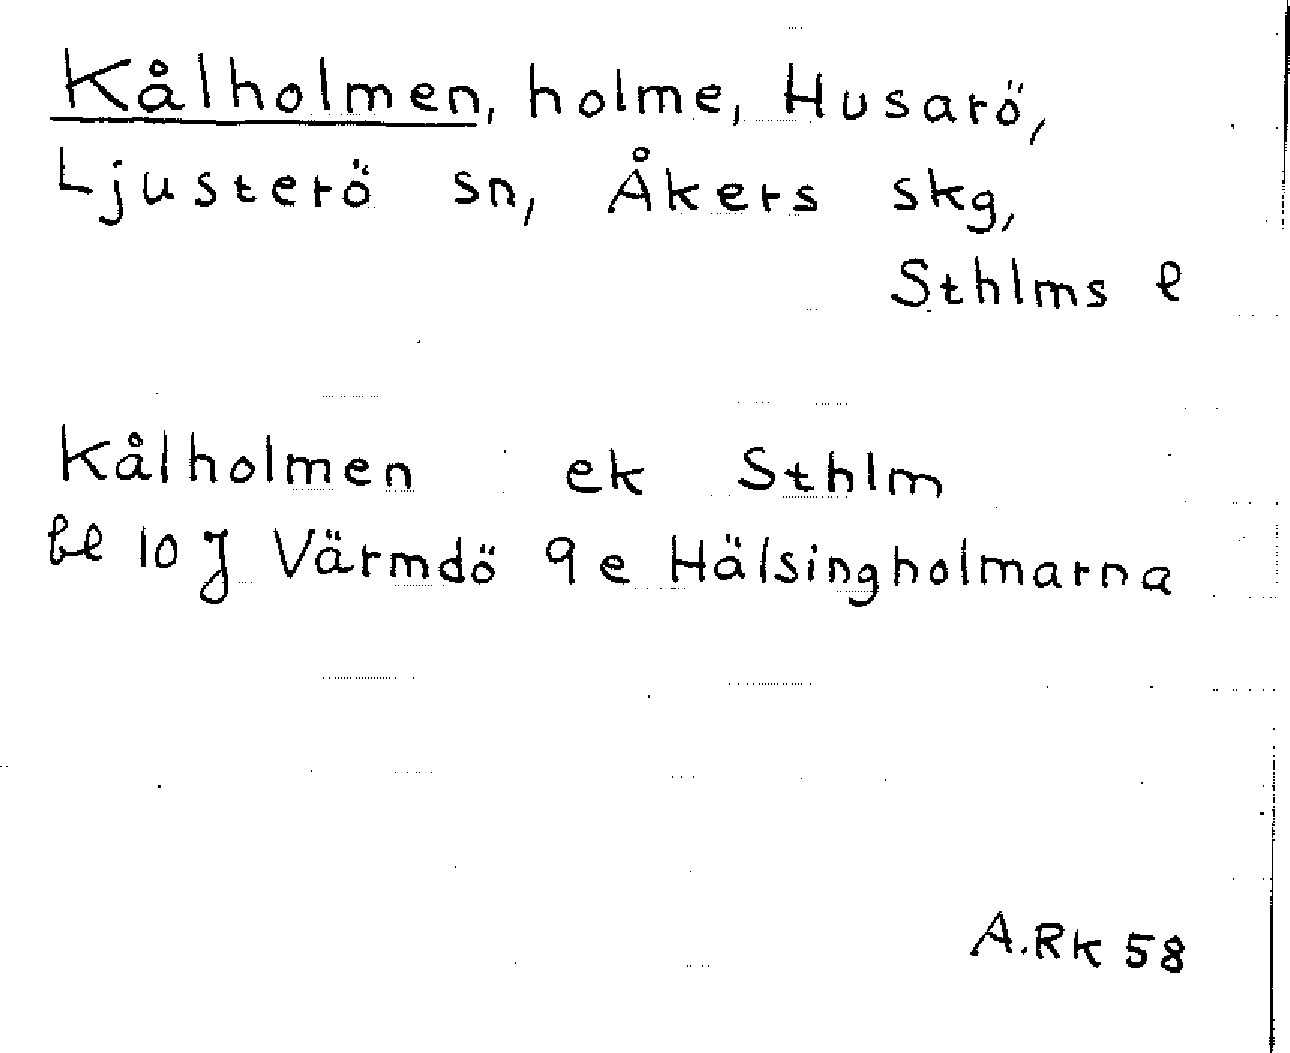 Kålholmen, holme, Husarö,
Ljusterö sn, Åkers skg,
Sthlms l
Kålholmen ek Sthlm
bl 10 J Värmdö 9 e Hälsingholmarna
A.Rk 58